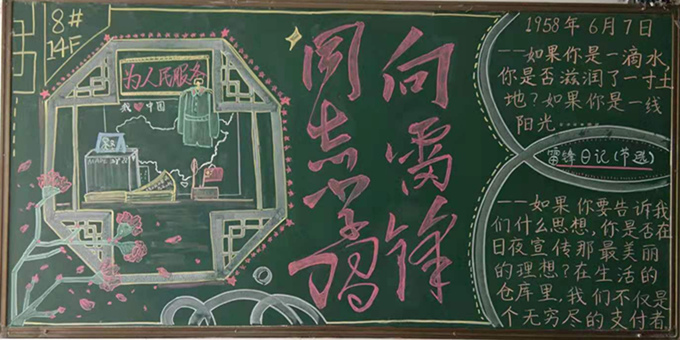 8#
14F
为人民服务
我❤中国
向雷锋
同志学习
1958年6月7日
——如果你是一滴水,
你是否滋润了一寸土
地?如果你是一线
阳光……
雷锋日记(节选)
——如果你要告诉我
们什么思想,你是否在
日夜宣传那最美丽
的理想?在生活的
仓库里,我们不仅是
个无穷尽的支付者